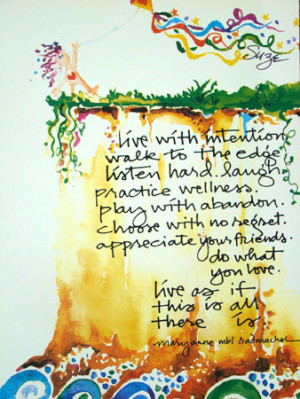 Suze
live with intention
walk to the edge
listen hard. laugh
practice wellness.
play with abandon.
choose with no regret.
appreciate your friends.
do what
you love.
live as if
this is all
there is
mary anne radmacher